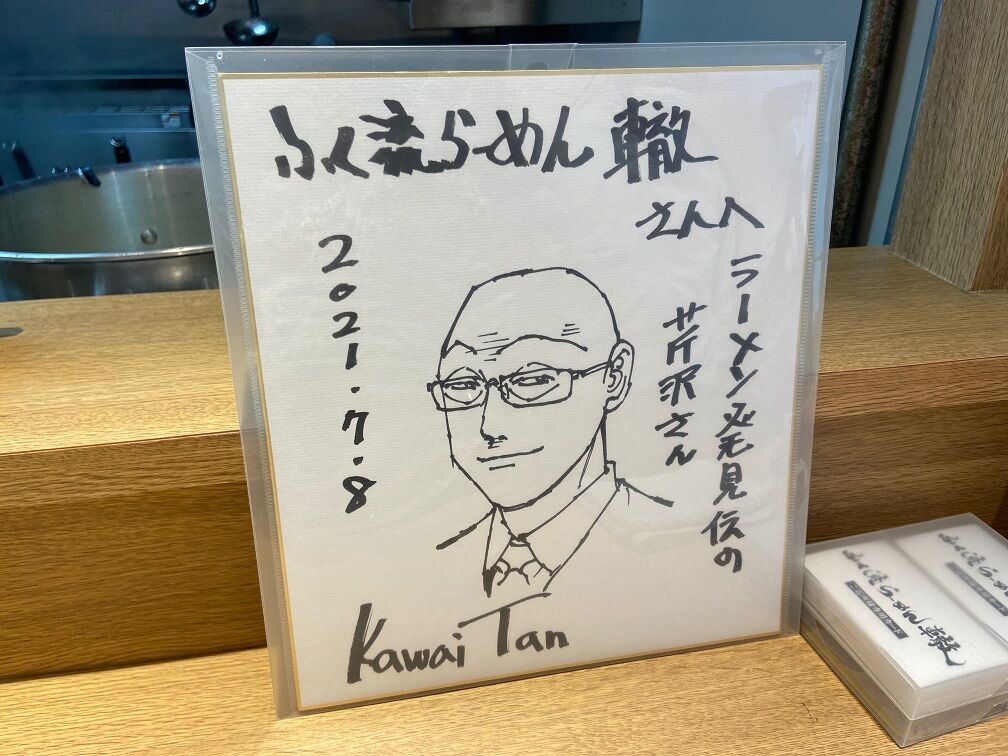 ふく流らーめん 轍
さんへ
ラーメン発見伝の
芹沢さん
2021.7.8
Kawai Tan
ふく流らーめん轍
ふく流らーめん